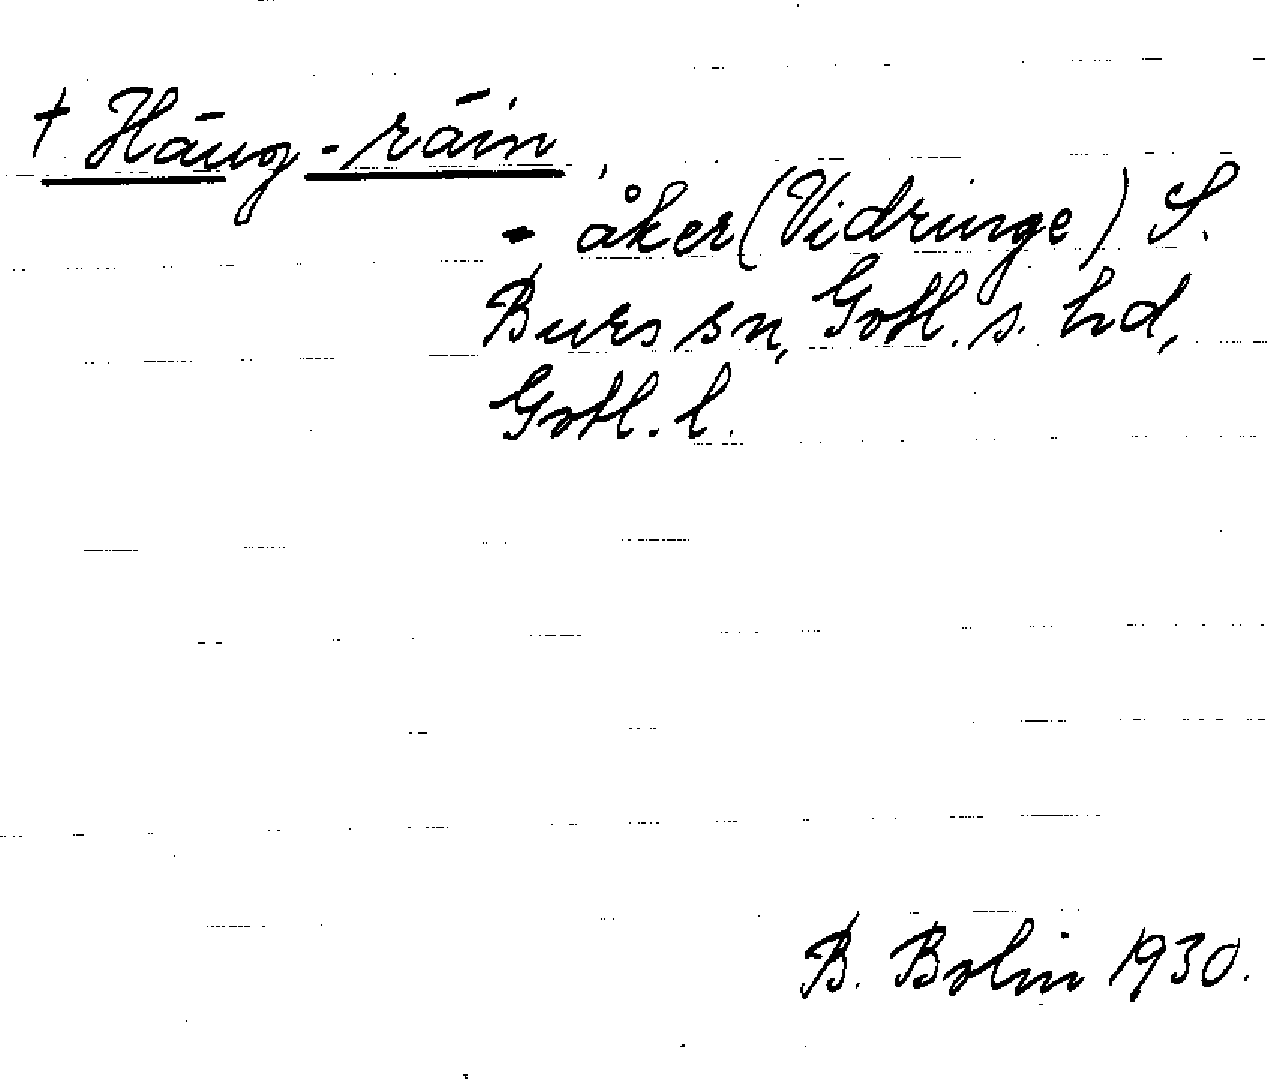 † Hāug-rāin,
- åker (Vidringe) S.
Burs sn, Gotl. s. hd,
Gotl. l.
B. Bolin 1930.